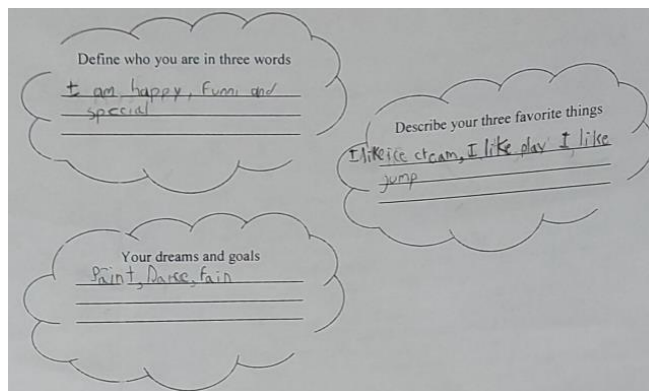 Define who you are in three words
I am, happy, Funni and
special
Describe your three favorite things
I like ice cream, I like play I like
jump
Your dreams and goals
Paint, Dance, Fain